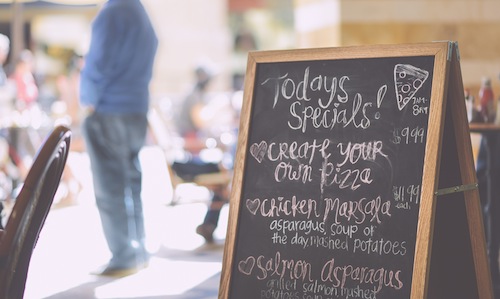 Today's
Specials!
7AM-
8PM
$9.99
create your
own Pizza
$11.99
each
chicken Marsala
asparagus, soup of
the day, mashed potatoes
Salmon Asparagus
grilled salmon
potatoes